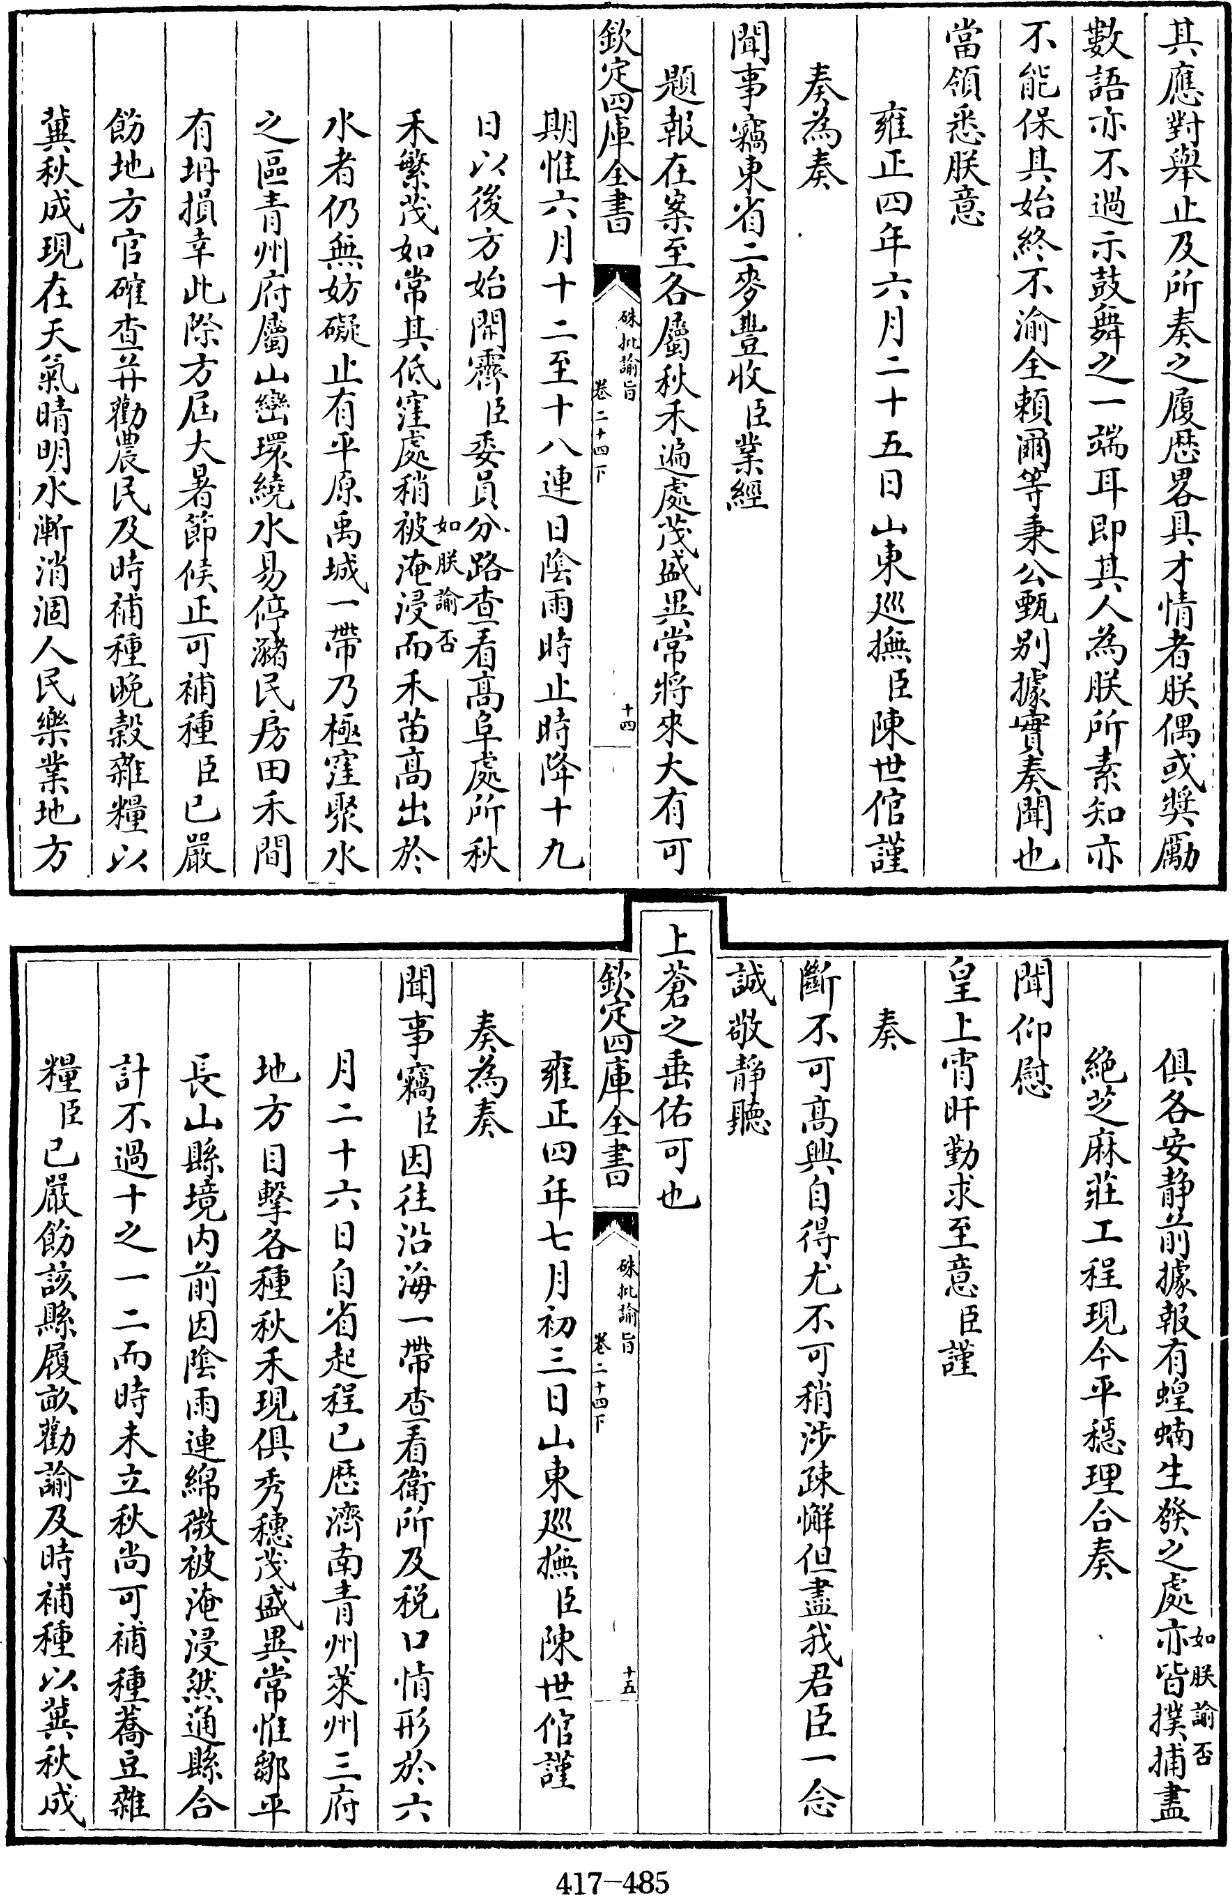 其應對舉止及所奏之履歴畧具才情者朕偶或奬勵
數語亦不過示鼓舞之一端耳即其人為朕所素知亦
不能保其始終不渝全賴爾等秉公甄别據實奏聞也
當領悉朕意
雍正四年六月二十五日山東廵撫臣陳世倌謹
奏為奏
聞事竊東省二麥豊收臣業經
題報在案至各屬秋禾遍處茂盛異常將來大有可
欽定四庫全書
硃批諭旨
卷二十四下
十四
期惟六月十二至十八連日陰雨時止時降十九
日以後方始開霽臣委員分路查看高阜處所秋
禾繁茂如常其低窪處稍被淹浸而禾苗高出於
如朕諭否
水者仍無妨礙止有平原禹城一帶乃極窪聚水
之區青州府屬山巒環繞水易停瀦民房田禾間
有坍損幸此際方屆大暑節候正可補種臣已嚴
飭地方官確查并勸農民及時補種晚穀雜糧以
冀秋成現在天氣晴明水漸消涸人民樂業地方
俱各安静前據報有蝗蝻生發之處亦皆撲捕盡
如朕諭否
絶芝麻莊工程現今平穩理合奏
聞仰慰
皇上宵旰勤求至意臣謹
奏
斷不可高興自得尤不可稍涉疎懈但盡我君臣一念
誠敬靜聽
上蒼之垂佑可也
欽定四庫全書
硃批諭旨
卷二十四下
十五
雍正四年七月初三日山東廵撫臣陳世倌謹
奏為奏
聞事竊臣因往沿海一帶查看衛所及税口情形於六
月二十六日自省起程已歴濟南青州萊州三府
地方目擊各種秋禾現俱秀穗茂盛異常惟鄒平
長山縣境内前因陰雨連綿微被淹浸然通縣合
計不過十之一二而時未立秋尚可補種蕎豆雜
糧臣已嚴飭該縣履畝勸諭及時補種以冀秋成
417-485